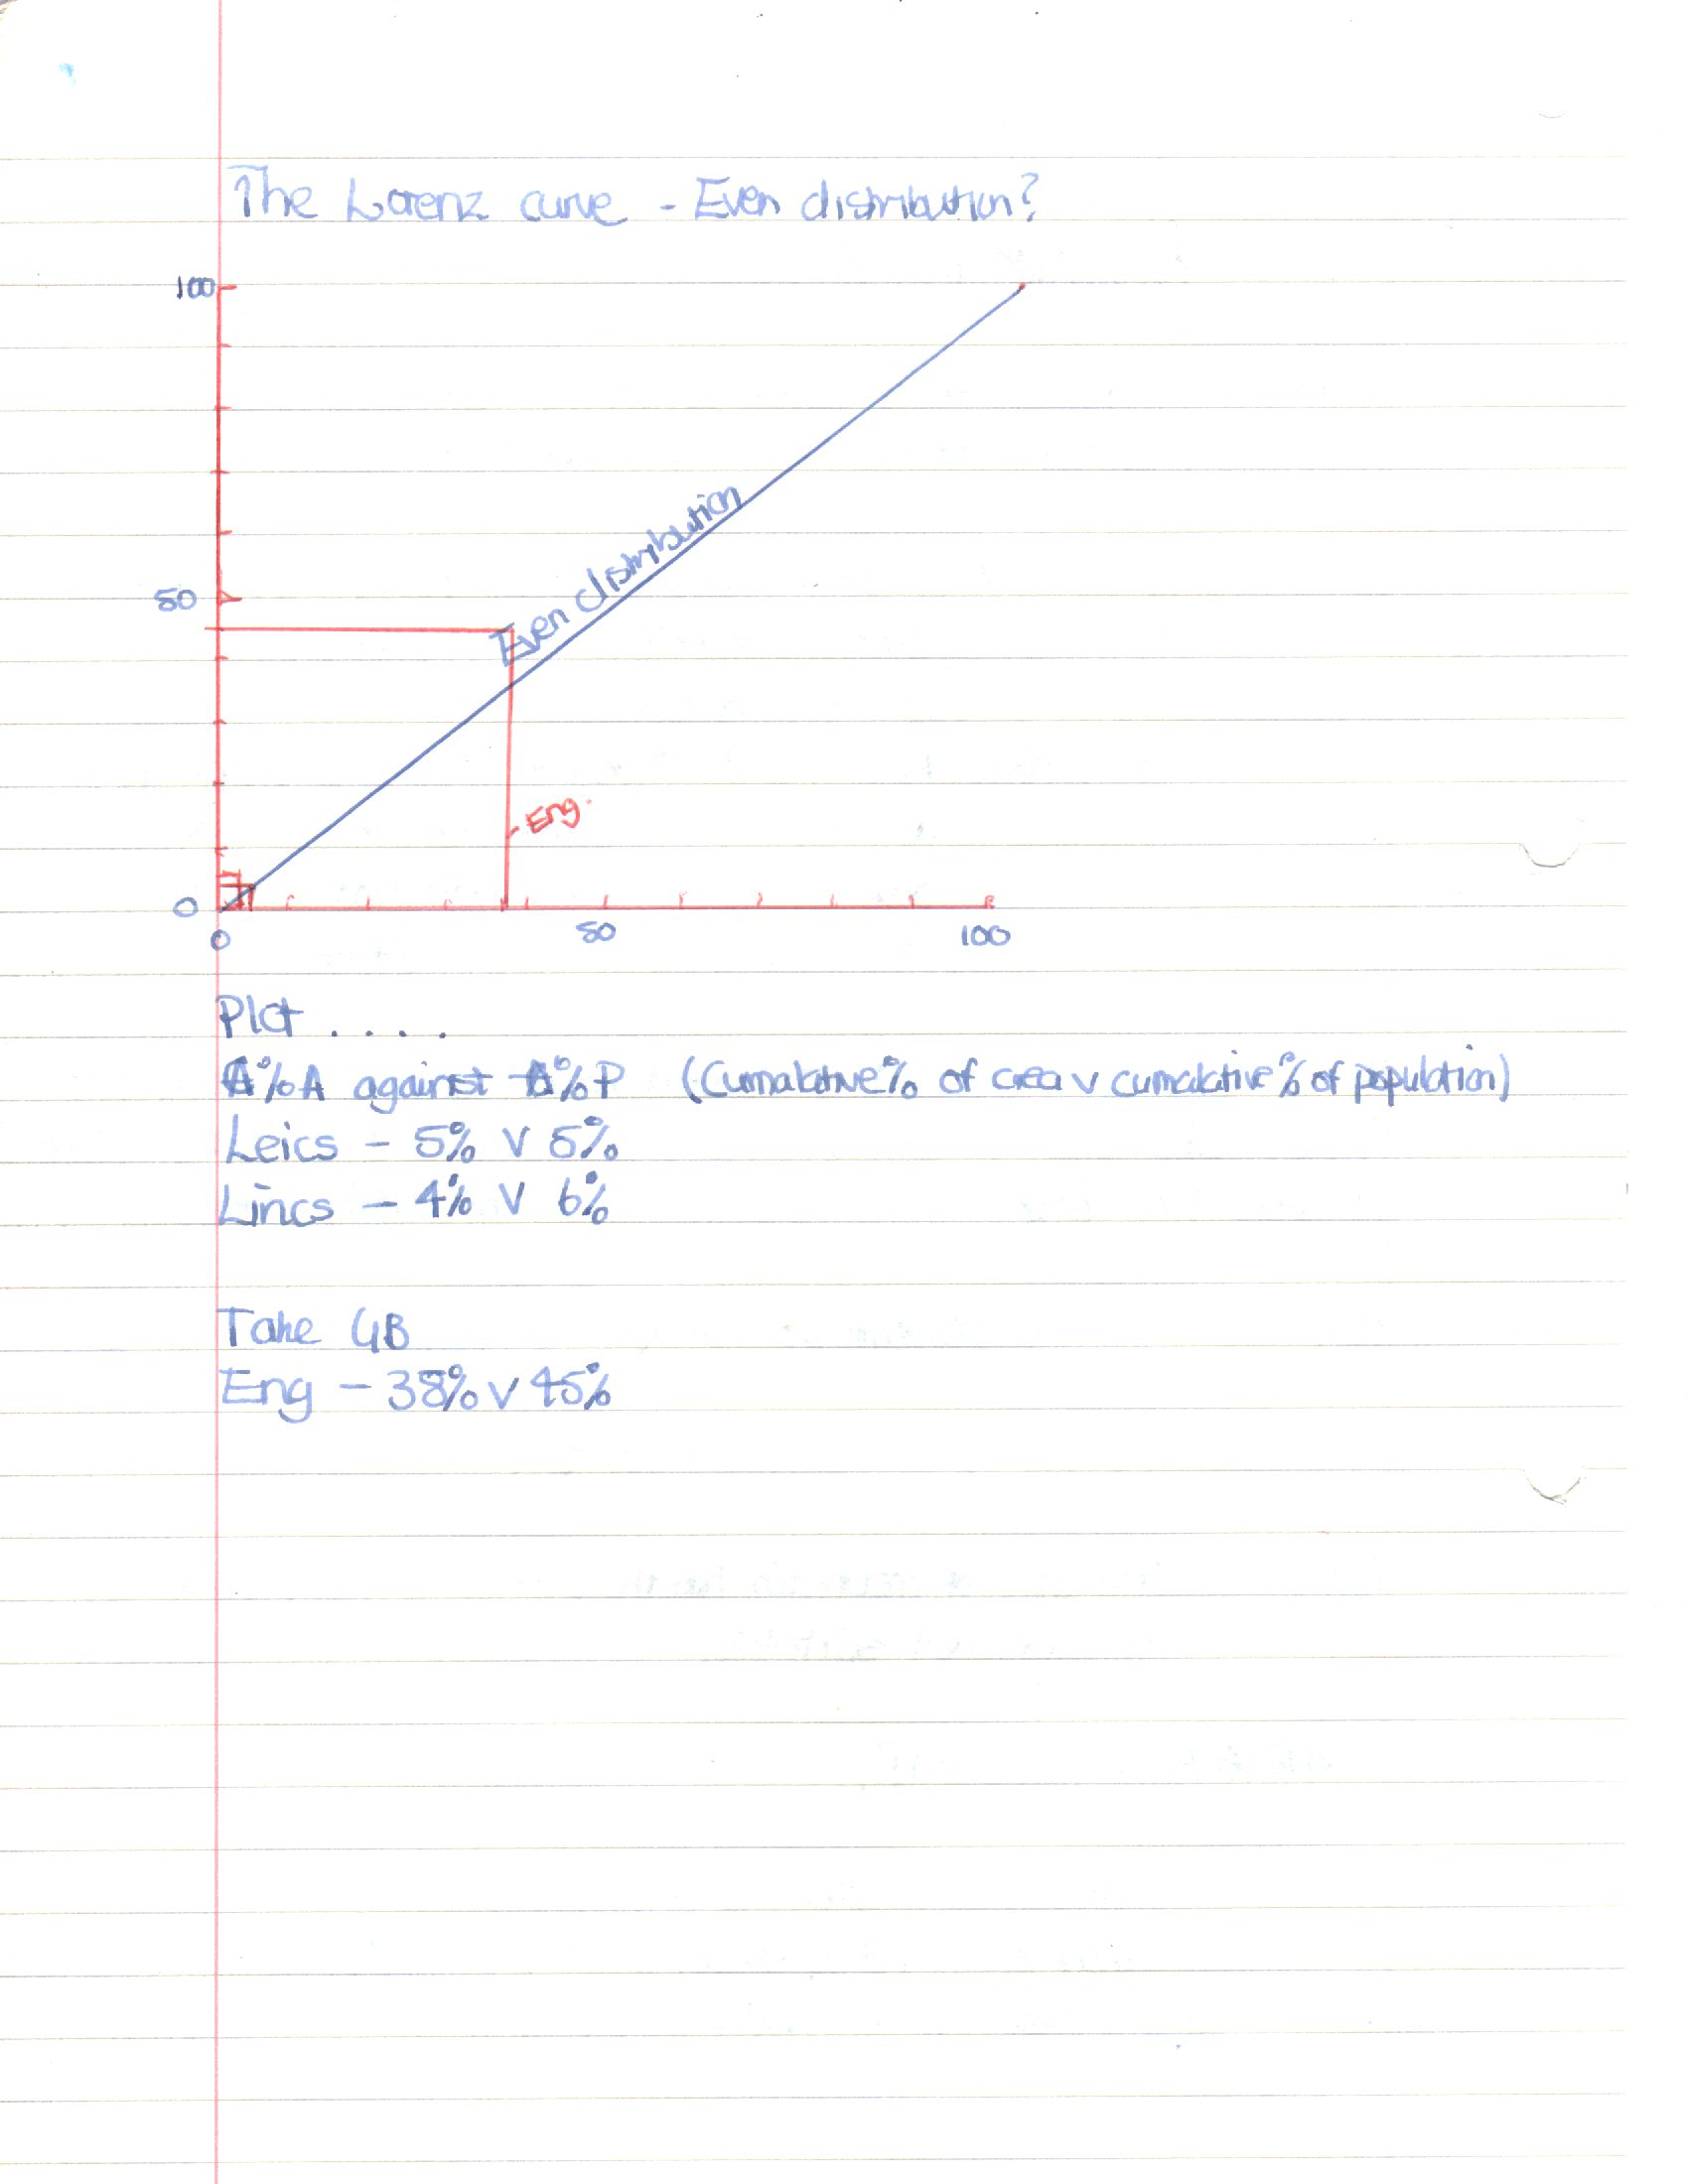 The Lorenz curve - Even distribution?
100
Even distribution
50
Eng.
0
0 50 100
Plot .....
%A against %P (Cumalative% of area v cumalative % of population)
Leics - 5% v 5%
Lincs - 4% v 6%
Take GB
Eng - 38% v 45%